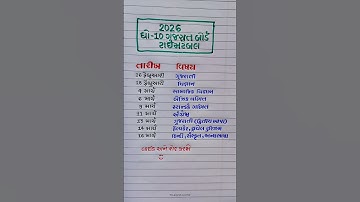 2026
ધો-10 ગુજરાત બોર્ડ
ટાઈમટેબલ
તારીખ વિષય
26 ફેબ્રુઆરી ગુજરાતી
28 ફેબ્રુઆરી વિજ્ઞાન
4 માર્ચ સામાજિક વિજ્ઞાન
6 માર્ચ બેઝિક ગણિત
9 માર્ચ સ્ટાન્ડર્ડ ગણિત
11 માર્ચ અંગ્રેજી
13 માર્ચ ગુજરાતી (દ્વિતીય ભાષા)
14 માર્ચ હેલ્થકેર, ટ્રાવેલ ટુરિઝમ
16 માર્ચ હિન્દી, સંસ્કૃત,
લાઈક અને શેર કરજો